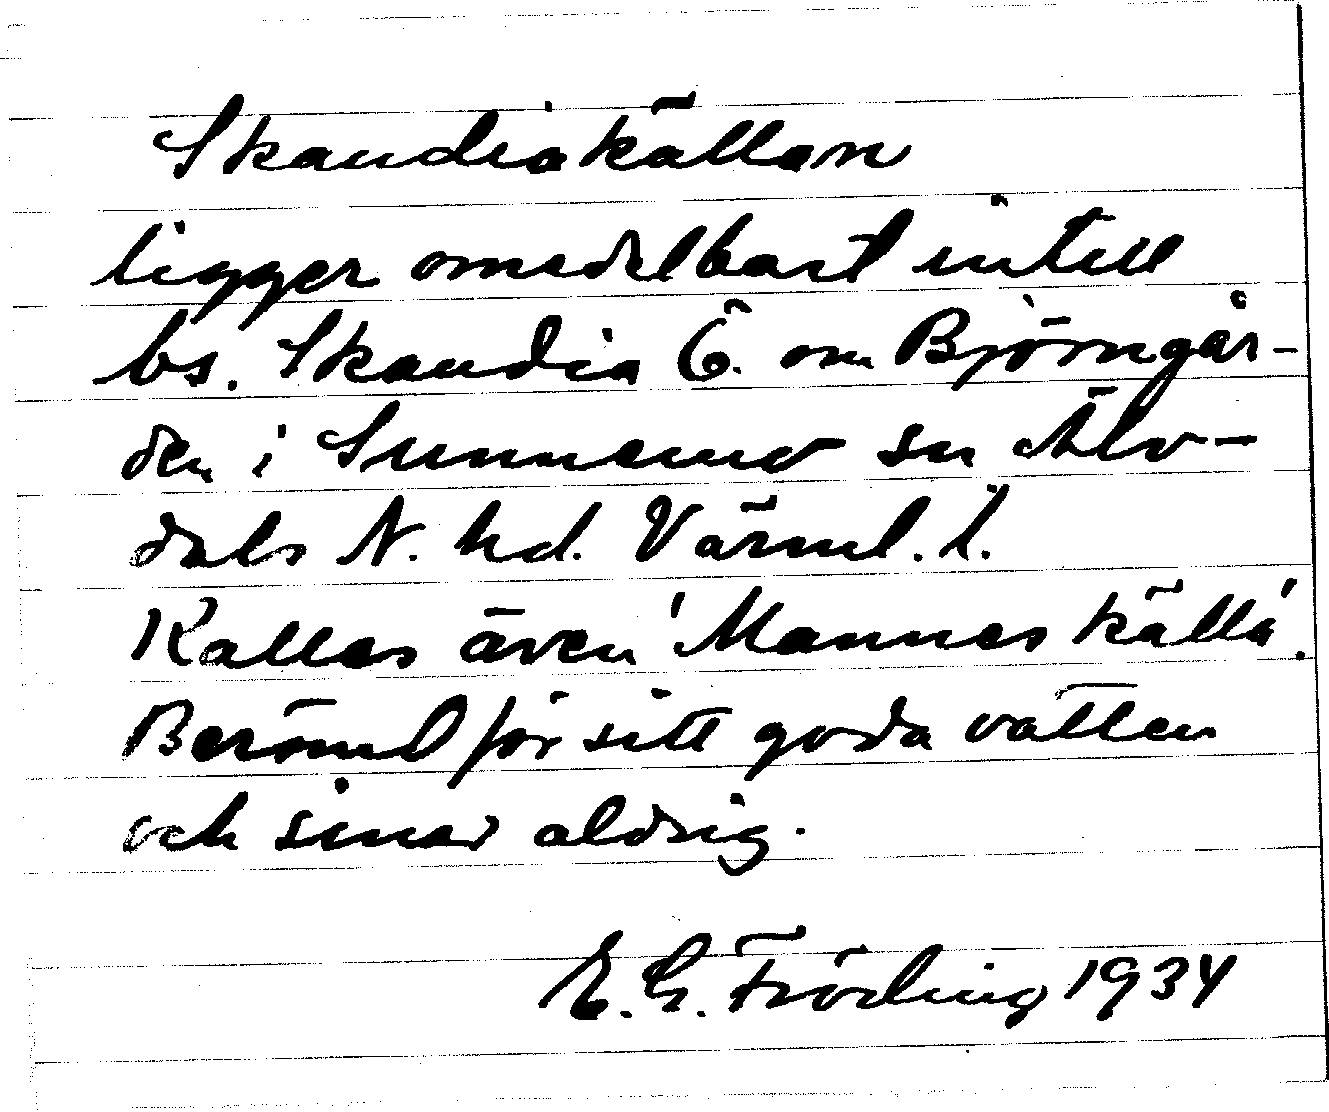 Skandiakällan
ligger omedelbart intill
bs. Skandia Ö. om Björngår-
den i Sunnemo sn Älv-
dals N. hd. Värml. l.
Kallas även 'Mannes källa'.
Berömd för sitt goda vatten
och sinar aldrig.
E. G. Fröding 1934